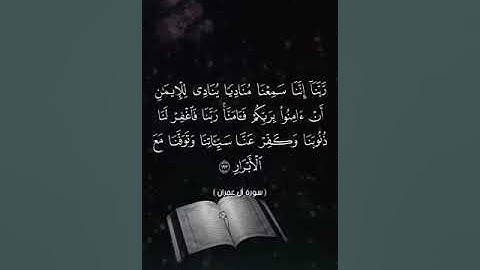 رَّبَّنَآ إِنَّنَا سَمِعْنَا مُنَادِيًا يُنَادِى لِلْإِيمَٰنِ
أَنْ ءَامِنُوا۟ بِرَبِّكُمْ فَـَٔامَنَّا ۚ رَبَّنَا فَٱغْفِرْ لَنَا
ذُنُوبَنَا وَكَفِّرْ عَنَّا سَيِّـَٔاتِنَا وَتَوَفَّنَا مَعَ
ٱلْأَبْرَارِ ﴿١٩٣﴾
( سورة آل عمران )